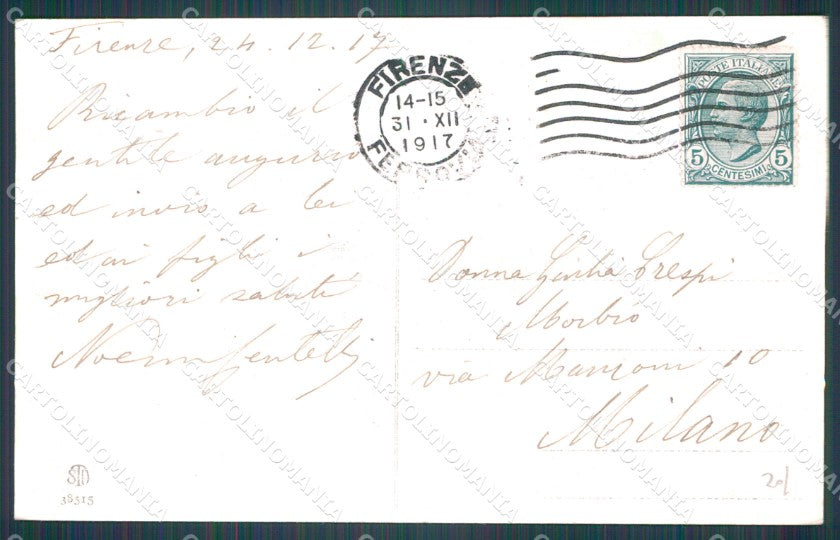 Firenze, 24.12.17
Ricambio il
gentile augurio
ed invio a lei
ed ai figli i
migliori saluti
Noemi
FIRENZE
14-15
31 · XII
1917
FERROVIA
POSTE ITALIANE
5 5
CENTESIMI
Donna Giulia Crespi
Morbio
via Manzoni 10
Milano
38515
CARTOLINOMANIA